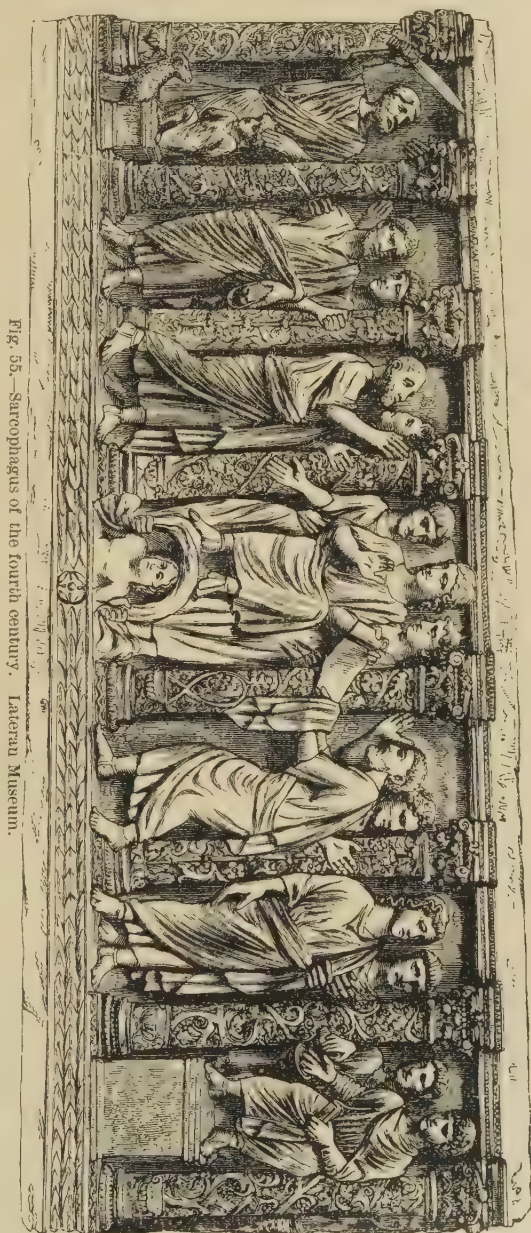 Fig. 55.—Sarcophagus of the fourth century. Lateran Museum.